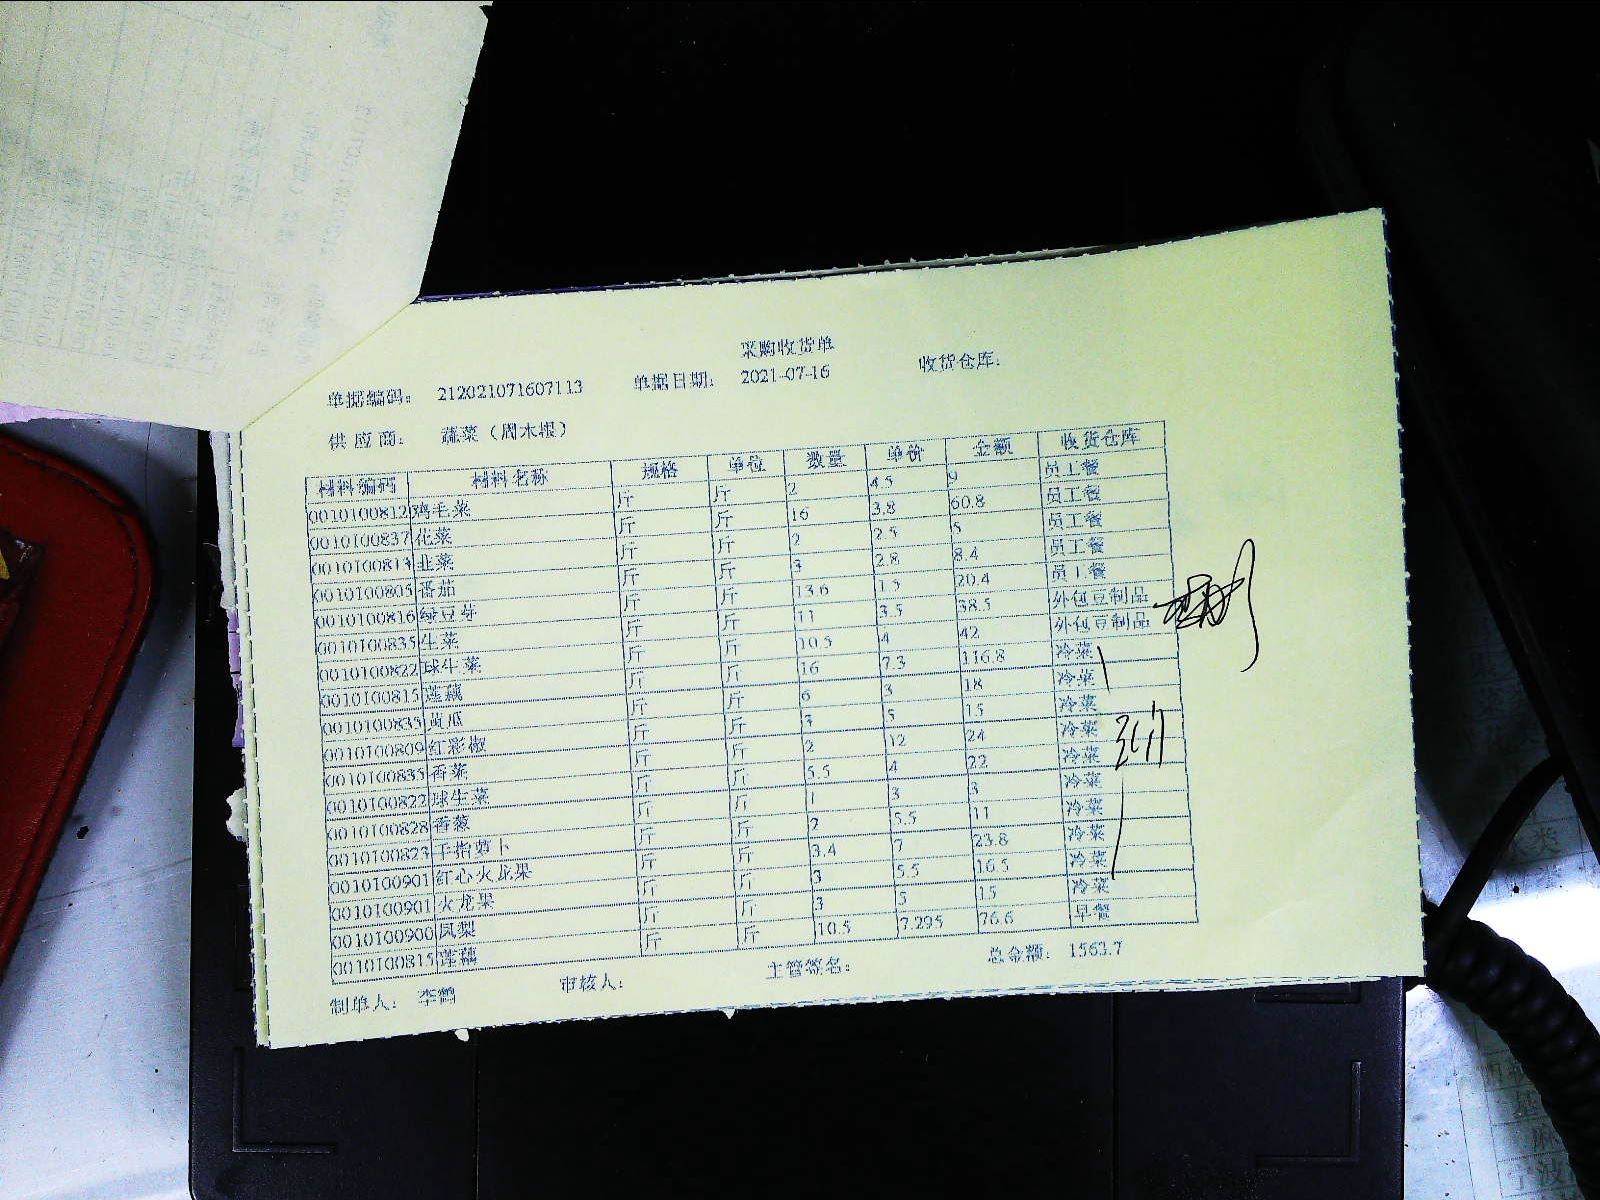 采购收货单
单据编码： 212021071607113 单据日期： 2021-07-16 收货仓库：
供应商： 蔬菜（周木根）
材料编码 材料名称 规格 单位 数量 单价 金额 收货仓库
0010100812 鸡毛菜 斤 斤 2 4.5 9 员工餐
0010100837 花菜 斤 斤 16 3.8 60.8 员工餐
0010100813 韭菜 斤 斤 2 2.5 5 员工餐
0010100805 番茄 斤 斤 3 2.8 8.4 员工餐
0010100816 绿豆芽 斤 斤 13.6 1.5 20.4 员工餐
0010100835 生菜 斤 斤 11 3.5 38.5 外包豆制品
0010100822 球生菜 斤 斤 10.5 4 42 外包豆制品
0010100815 莲藕 斤 斤 16 7.3 116.8 冷菜
0010100835 黄瓜 斤 斤 6 3 18 冷菜
0010100809 红彩椒 斤 斤 3 5 15 冷菜
0010100835 香菜 斤 斤 2 12 24 冷菜
0010100822 球生菜 斤 斤 5.5 4 22 冷菜
0010100828 香葱 斤 斤 1 3 3 冷菜
0010100823 手指萝卜 斤 斤 2 5.5 11 冷菜
0010100901 红心火龙果 斤 斤 3.4 7 23.8 冷菜
0010100901 火龙果 斤 斤 3 5.5 16.5 冷菜
0010100900 凤梨 斤 斤 3 5 15 冷菜
0010100815 莲藕 斤 斤 10.5 7.295 76.6 早餐
制单人： 李鹤 审核人： 主管签名： 总金额： 1563.7